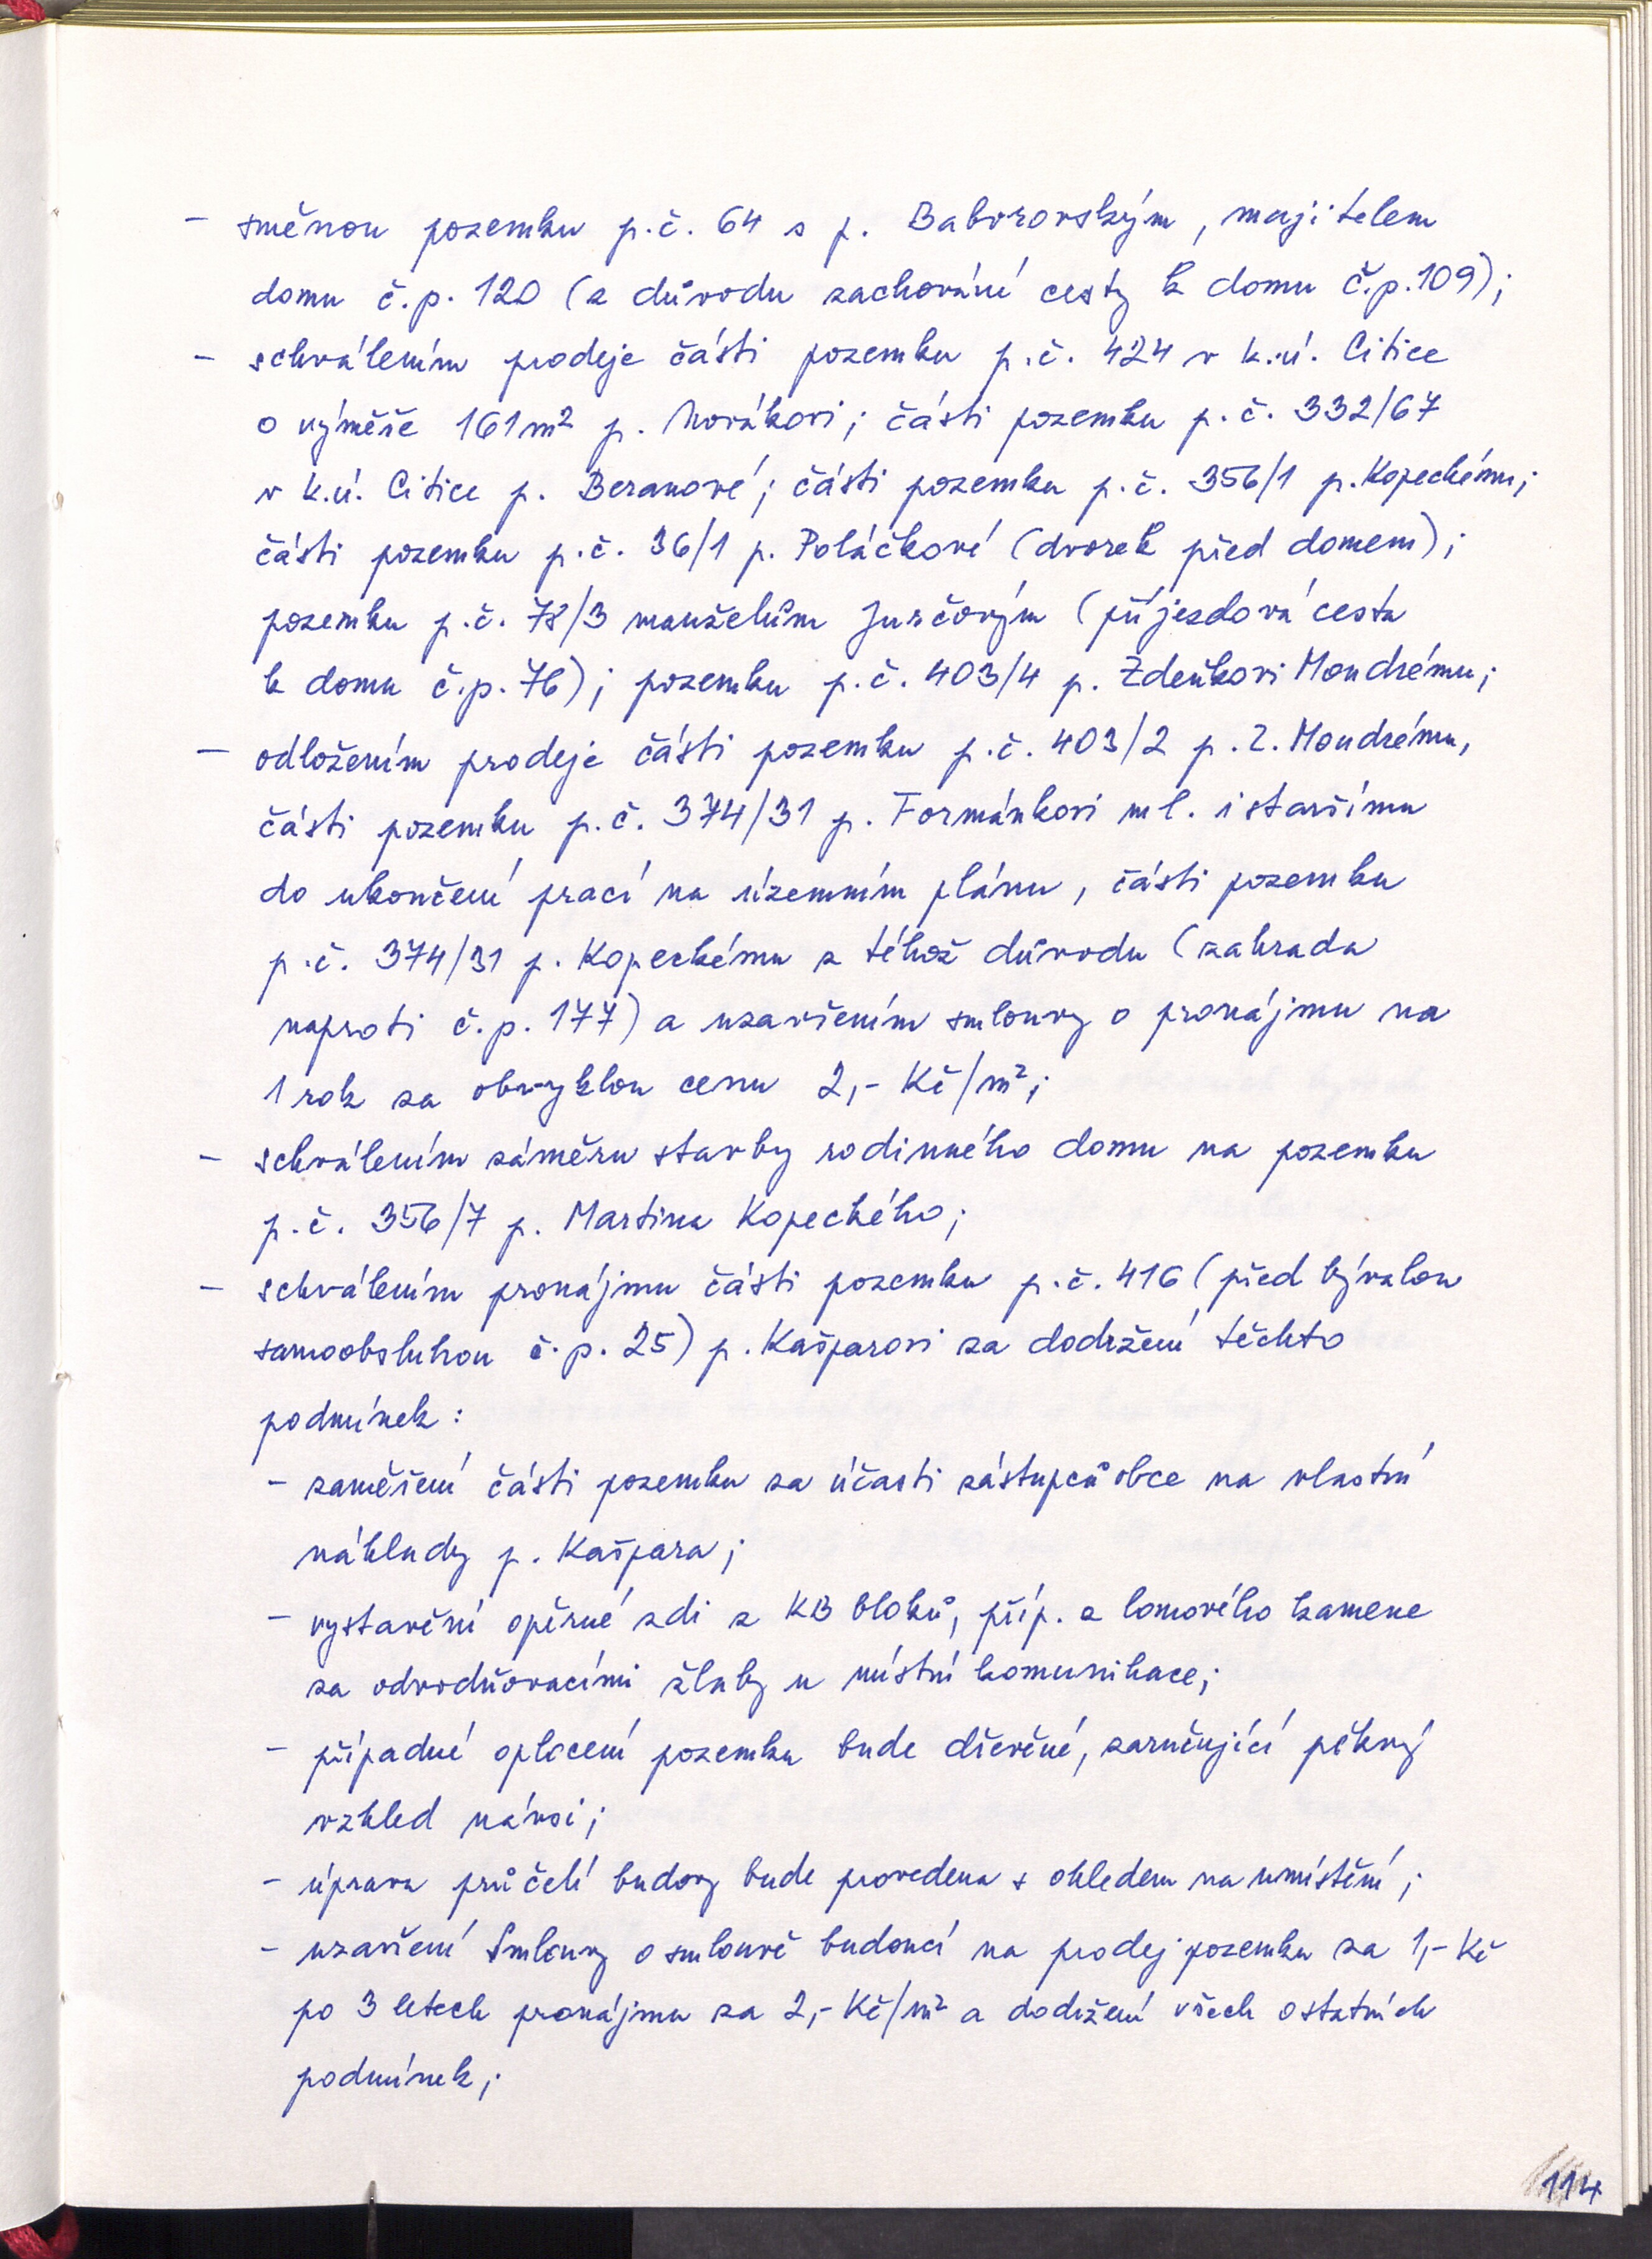 - směnou pozemku p.č. 64 s p. Baborovským, majitelem
domu č.p. 120 (z důvodu zachování cesty k domu č.p. 109);
- schválením prodeje části pozemku p.č. 424 v k.ú. Citice
o výměře 161 m² p. Novákovi; části pozemku p.č. 332/67
v k.ú. Citice p. Beranové; části pozemku p.č. 356/1 p. Kopeckému;
části pozemku p.č. 36/1 p. Poláčkové (dvorek před domem);
pozemku p.č. 78/3 manželům Jurčovým (příjezdová cesta
k domu č.p. 76); pozemku p.č. 403/4 p. Zdeňkovi Moudrému;
- odložením prodeje části pozemku p.č. 403/2 p. Z. Moudrému,
části pozemku p.č. 374/31 p. Formánkovi ml. i staršímu
do ukončení prací na územním plánu, části pozemku
p.č. 374/31 p. Kopeckému z téhož důvodu (zahrada
naproti č.p. 177) a uzavřením smlouvy o pronájmu na
1 rok za obvyklou cenu 2,- Kč/m²;
- schválením záměru stavby rodinného domu na pozemku
p.č. 356/7 p. Martina Kopeckého;
- schválením pronájmu části pozemku p.č. 416 (před bývalou
samoobsluhou č.p. 25) p. Kašparovi za dodržení těchto
podmínek:
- zaměření části pozemku za účasti zástupců obce na vlastní
náklady p. Kašpara;
- vystavění opěrné zdi z KB bloků, příp. z lomového kamene
za odvodňovacími žlaby u místní komunikace;
- případné oplocení pozemku bude dřevěné, zaručující pěkný
vzhled návsi;
- úprava průčelí budovy bude provedena s ohledem na umístění;
- uzavření Smlouvy o smlouvě budoucí na prodej pozemku za 1,- Kč
po 3 letech pronájmu za 2,- Kč/m² a dodržení všech ostatních
podmínek;
114